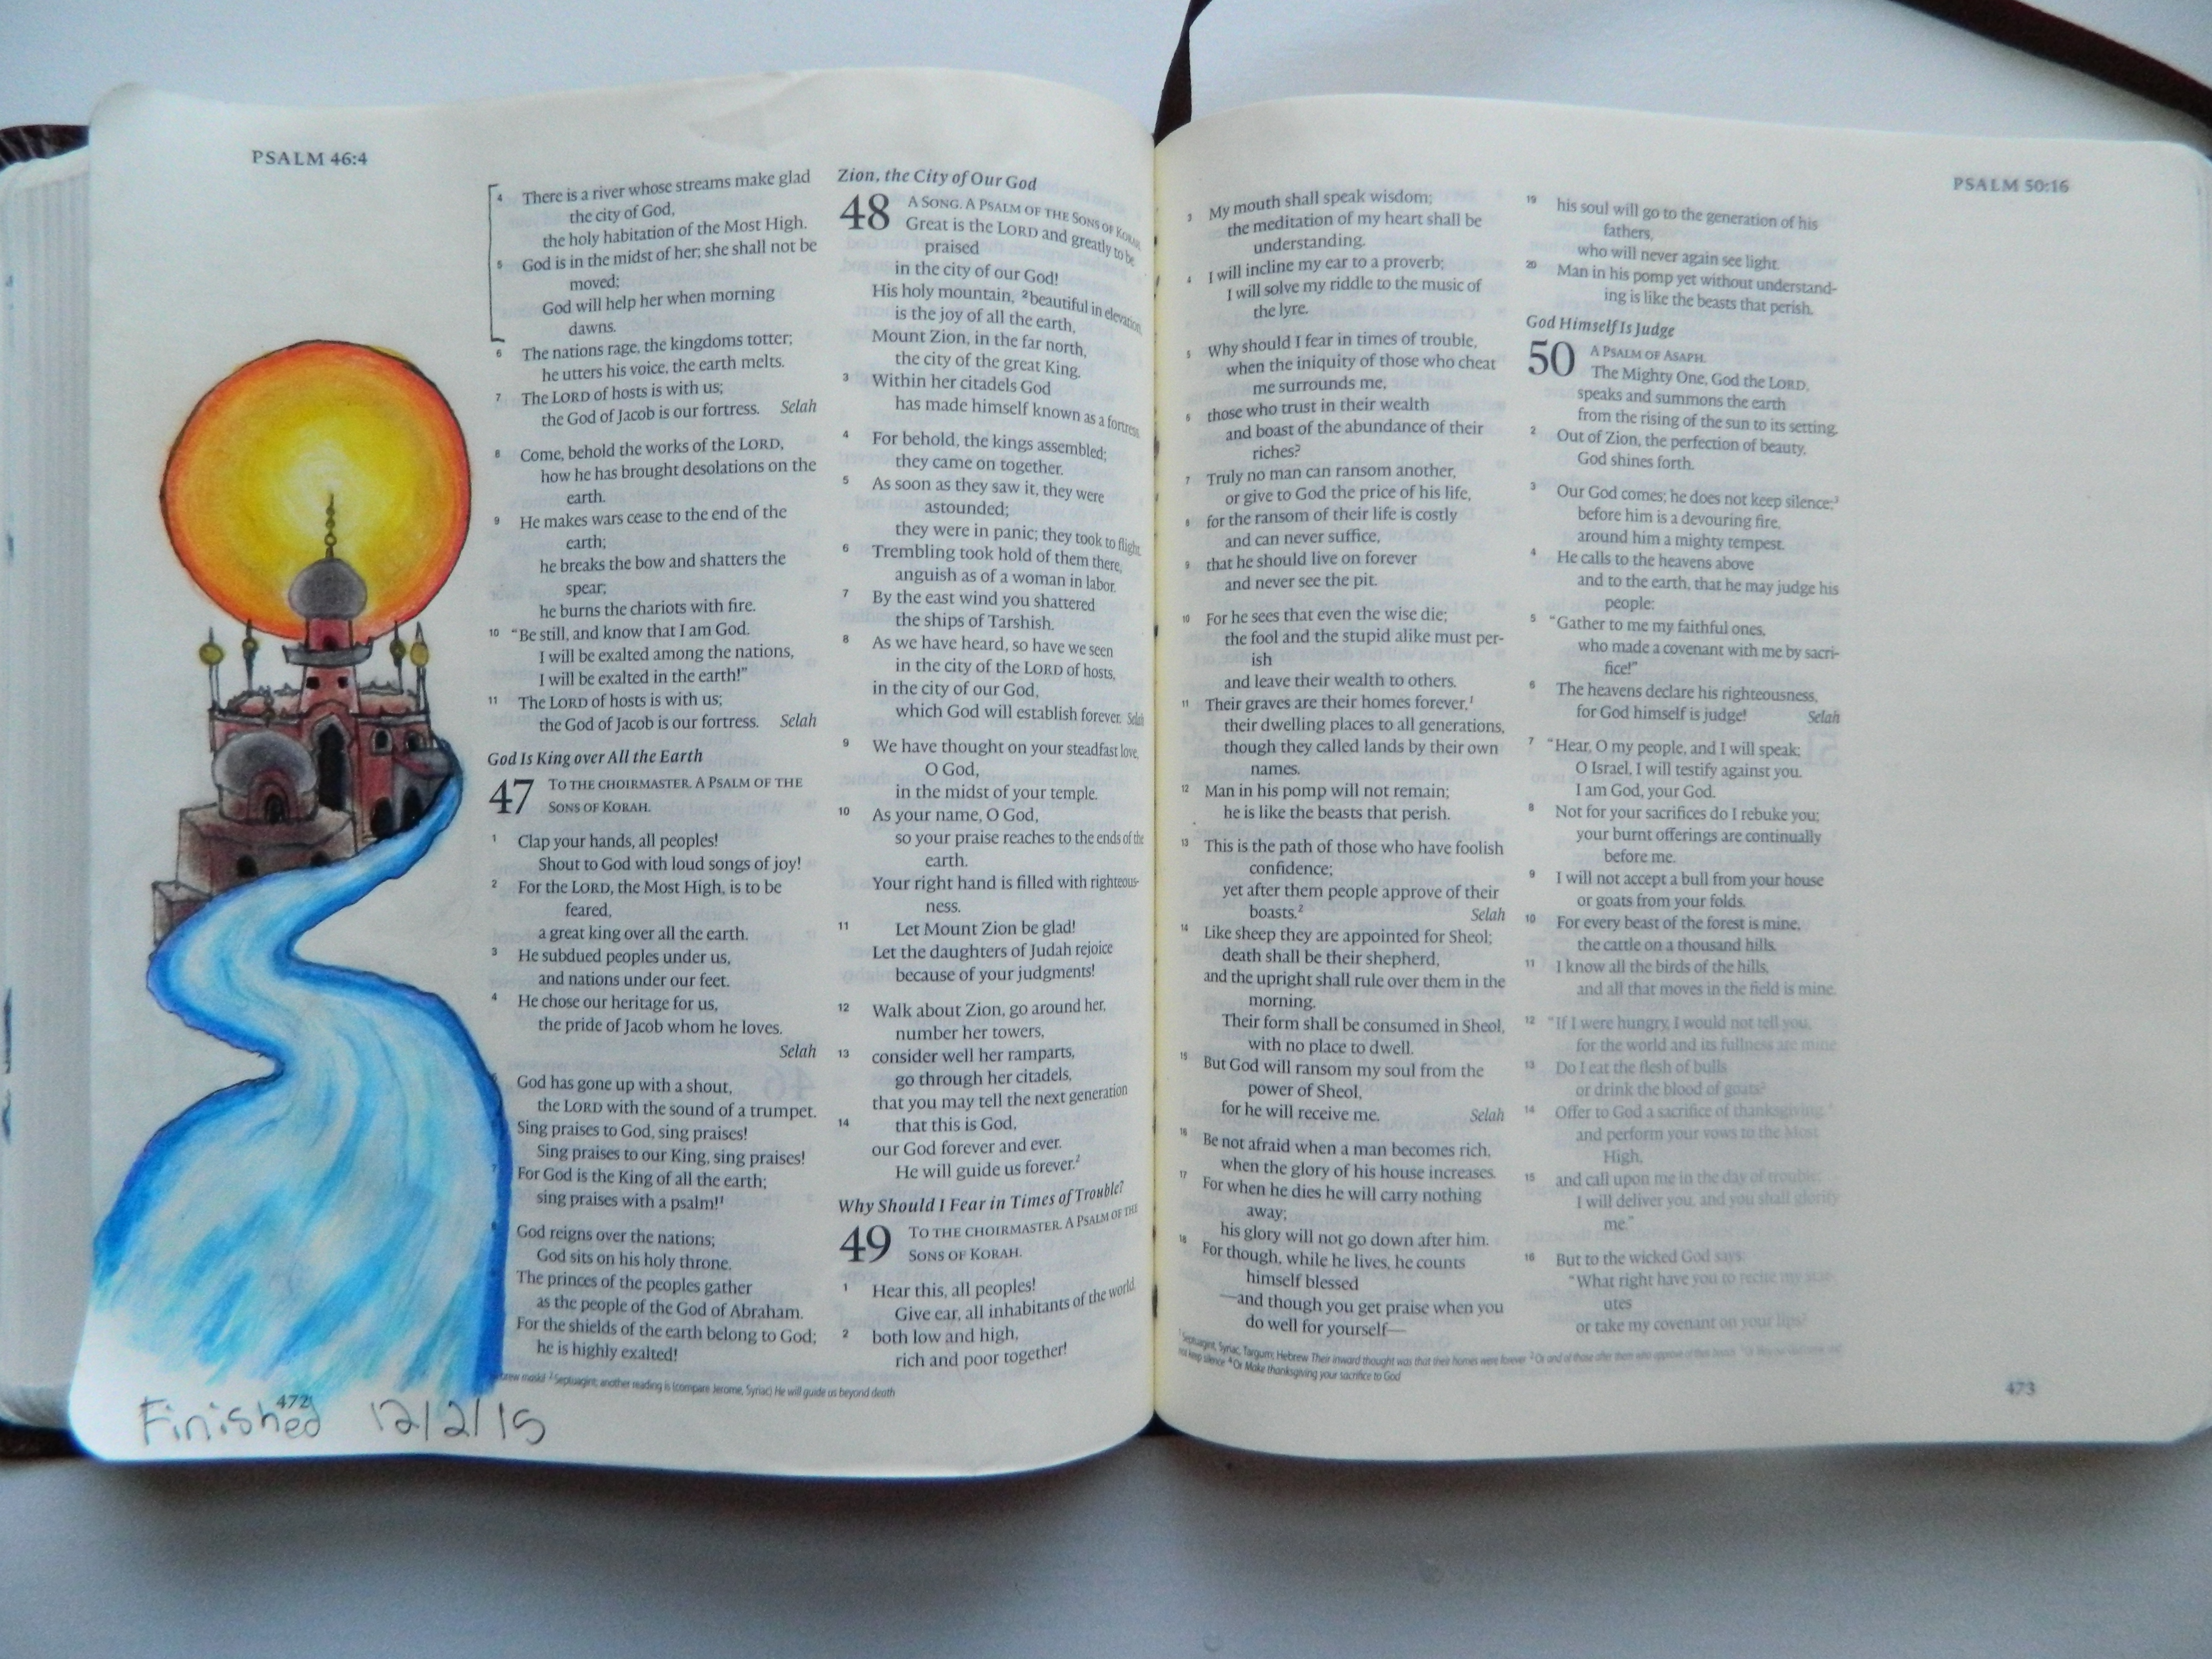 PSALM 46:4
4 There is a river whose streams make glad
the city of God,
the holy habitation of the Most High.
5 God is in the midst of her; she shall not be
moved;
God will help her when morning
dawns.
6 The nations rage, the kingdoms totter;
he utters his voice, the earth melts.
7 The LORD of hosts is with us;
the God of Jacob is our fortress. Selah
8 Come, behold the works of the LORD,
how he has brought desolations on the
earth.
9 He makes wars cease to the end of the
earth;
he breaks the bow and shatters the
spear;
he burns the chariots with fire.
10 “Be still, and know that I am God.
I will be exalted among the nations,
I will be exalted in the earth!”
11 The LORD of hosts is with us;
the God of Jacob is our fortress. Selah
God Is King over All the Earth
47 TO THE CHOIRMASTER. A PSALM OF THE
SONS OF KORAH.
1 Clap your hands, all peoples!
Shout to God with loud songs of joy!
2 For the LORD, the Most High, is to be
feared,
a great king over all the earth.
3 He subdued peoples under us,
and nations under our feet.
4 He chose our heritage for us,
the pride of Jacob whom he loves.
Selah
God has gone up with a shout,
the LORD with the sound of a trumpet.
Sing praises to God, sing praises!
Sing praises to our King, sing praises!
7 For God is the King of all the earth;
sing praises with a psalm!1
8 God reigns over the nations;
God sits on his holy throne.
The princes of the peoples gather
as the people of the God of Abraham.
For the shields of the earth belong to God;
he is highly exalted!
Zion, the City of Our God
48 A SONG. A PSALM OF THE SONS OF KORAH.
Great is the LORD and greatly to be
praised
in the city of our God!
His holy mountain, 2 beautiful in elevation,
is the joy of all the earth,
Mount Zion, in the far north,
the city of the great King.
3 Within her citadels God
has made himself known as a fortress.
4 For behold, the kings assembled;
they came on together.
5 As soon as they saw it, they were
astounded;
they were in panic; they took to flight.
6 Trembling took hold of them there,
anguish as of a woman in labor.
7 By the east wind you shattered
the ships of Tarshish.
8 As we have heard, so have we seen
in the city of the LORD of hosts,
in the city of our God,
which God will establish forever. Selah
9 We have thought on your steadfast love,
O God,
in the midst of your temple.
10 As your name, O God,
so your praise reaches to the ends of the
earth.
Your right hand is filled with righteous-
ness.
11 Let Mount Zion be glad!
Let the daughters of Judah rejoice
because of your judgments!
12 Walk about Zion, go around her,
number her towers,
13 consider well her ramparts,
go through her citadels,
that you may tell the next generation
14 that this is God,
our God forever and ever.
He will guide us forever.2
Why Should I Fear in Times of Trouble?
49 TO THE CHOIRMASTER. A PSALM OF THE
SONS OF KORAH.
1 Hear this, all peoples!
Give ear, all inhabitants of the world,
2 both low and high,
rich and poor together!
maskil 2 Septuagint; another reading is (compare Jerome, Syriac) He will guide us beyond death
472
Finished 12/2/15
PSALM 50:16
3 My mouth shall speak wisdom;
the meditation of my heart shall be
understanding.
4 I will incline my ear to a proverb;
I will solve my riddle to the music of
the lyre.
5 Why should I fear in times of trouble,
when the iniquity of those who cheat
me surrounds me,
6 those who trust in their wealth
and boast of the abundance of their
riches?
7 Truly no man can ransom another,
or give to God the price of his life,
8 for the ransom of their life is costly
and can never suffice,
9 that he should live on forever
and never see the pit.
10 For he sees that even the wise die;
the fool and the stupid alike must per-
ish
and leave their wealth to others.
11 Their graves are their homes forever,1
their dwelling places to all generations,
though they called lands by their own
names.
12 Man in his pomp will not remain;
he is like the beasts that perish.
13 This is the path of those who have foolish
confidence;
yet after them people approve of their
boasts.2 Selah
14 Like sheep they are appointed for Sheol;
death shall be their shepherd,
and the upright shall rule over them in the
morning.
Their form shall be consumed in Sheol,
with no place to dwell.
15 But God will ransom my soul from the
power of Sheol,
for he will receive me. Selah
16 Be not afraid when a man becomes rich,
when the glory of his house increases.
17 For when he dies he will carry nothing
away;
his glory will not go down after him.
18 For though, while he lives, he counts
himself blessed
—and though you get praise when you
do well for yourself—
19 his soul will go to the generation of his
fathers,
who will never again see light.
20 Man in his pomp yet without understand-
ing is like the beasts that perish.
God Himself Is Judge
50 A PSALM OF ASAPH.
The Mighty One, God the LORD,
speaks and summons the earth
from the rising of the sun to its setting.
2 Out of Zion, the perfection of beauty,
God shines forth.
3 Our God comes; he does not keep silence;3
before him is a devouring fire,
around him a mighty tempest.
4 He calls to the heavens above
and to the earth, that he may judge his
people:
5 “Gather to me my faithful ones,
who made a covenant with me by sacri-
fice!”
6 The heavens declare his righteousness,
for God himself is judge! Selah
7 “Hear, O my people, and I will speak;
O Israel, I will testify against you.
I am God, your God.
8 Not for your sacrifices do I rebuke you;
your burnt offerings are continually
before me.
9 I will not accept a bull from your house
or goats from your folds.
10 For every beast of the forest is mine,
the cattle on a thousand hills.
11 I know all the birds of the hills,
and all that moves in the field is mine.
12 “If I were hungry, I would not tell you,
for the world and its fullness are mine.
13 Do I eat the flesh of bulls
or drink the blood of goats?
14 Offer to God a sacrifice of thanksgiving,4
and perform your vows to the Most
High,
15 and call upon me in the day of trouble;
I will deliver you, and you shall glorify
me.”
16 But to the wicked God says:
“What right have you to recite my stat-
utes
or take my covenant on your lips?
1 Septuagint, Syriac, Targum; Hebrew Their inward thought was that their homes were forever 2 Or and of those after them who approve of their boasts
not keep silence 4 Or Make thanksgiving your sacrifice to God
473